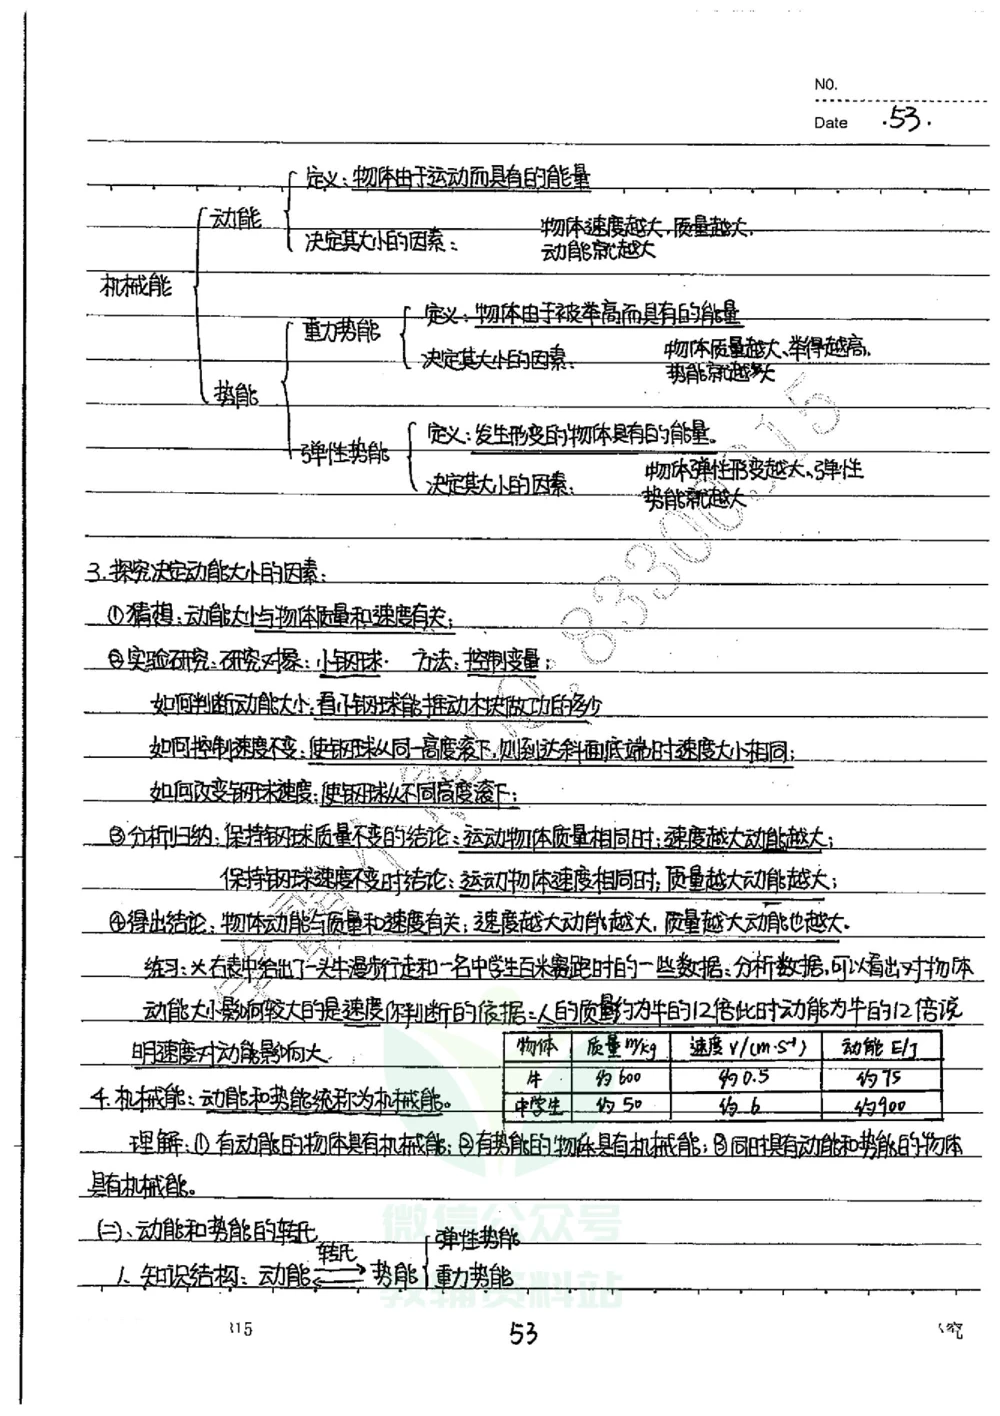 NO.
Date .53.
定义：物体由于运动而具有的能量
动能
决定其大小的因素： 物体速度越大，质量越大，
动能就越大
机械能
定义：物体由于被举高而具有的能量
重力势能
决定其大小的因素： 物体质量越大、举得越高，
势能就越大
势能
定义：发生形变的物体具有的能量。
弹性势能
决定其大小的因素： 物体弹性形变越大、弹性
势能就越大
3.探究决定动能大小的因素：
①猜想：动能大小与物体质量和速度有关；
②实验研究：研究对象：小钢球 方法：控制变量；
如何判断动能大小：看小钢球能推动木块做功的多少
如何控制速度不变：使钢球从同一高度滚下，则到达斜面底端时速度大小相同；
如何改变钢球速度：使钢球从不同高度滚下；
③分析归纳：保持钢球质量不变的结论：运动物体质量相同时；速度越大动能越大；
保持钢球速度不变时结论：运动物体速度相同时；质量越大动能越大；
④得出结论：物体动能与质量和速度有关；速度越大动能越大，质量越大动能也越大。
练习：☆右表中给出了一头牛漫步行走和一名中学生百米赛跑时的一些数据：分析数据，可以看出对物体
动能大小影响较大的是速度 你判断的依据：人的质量约为牛的1/12倍此时动能为牛的12倍说
明速度对动能影响大
物体 质量m/kg 速度v/(m·s⁻¹) 动能E/J
牛 约600 约0.5 约75
中学生 约50 约6 约900
4.机械能：动能和势能统称为机械能。
理解：①有动能的物体具有机械能；②有势能的物体具有机械能；③同时具有动能和势能的物体
具有机械能。
(二)、动能和势能的转化
1、知识结构：动能 转化 势能 弹性势能
重力势能
微信公众号
教辅资料站
315
53
究